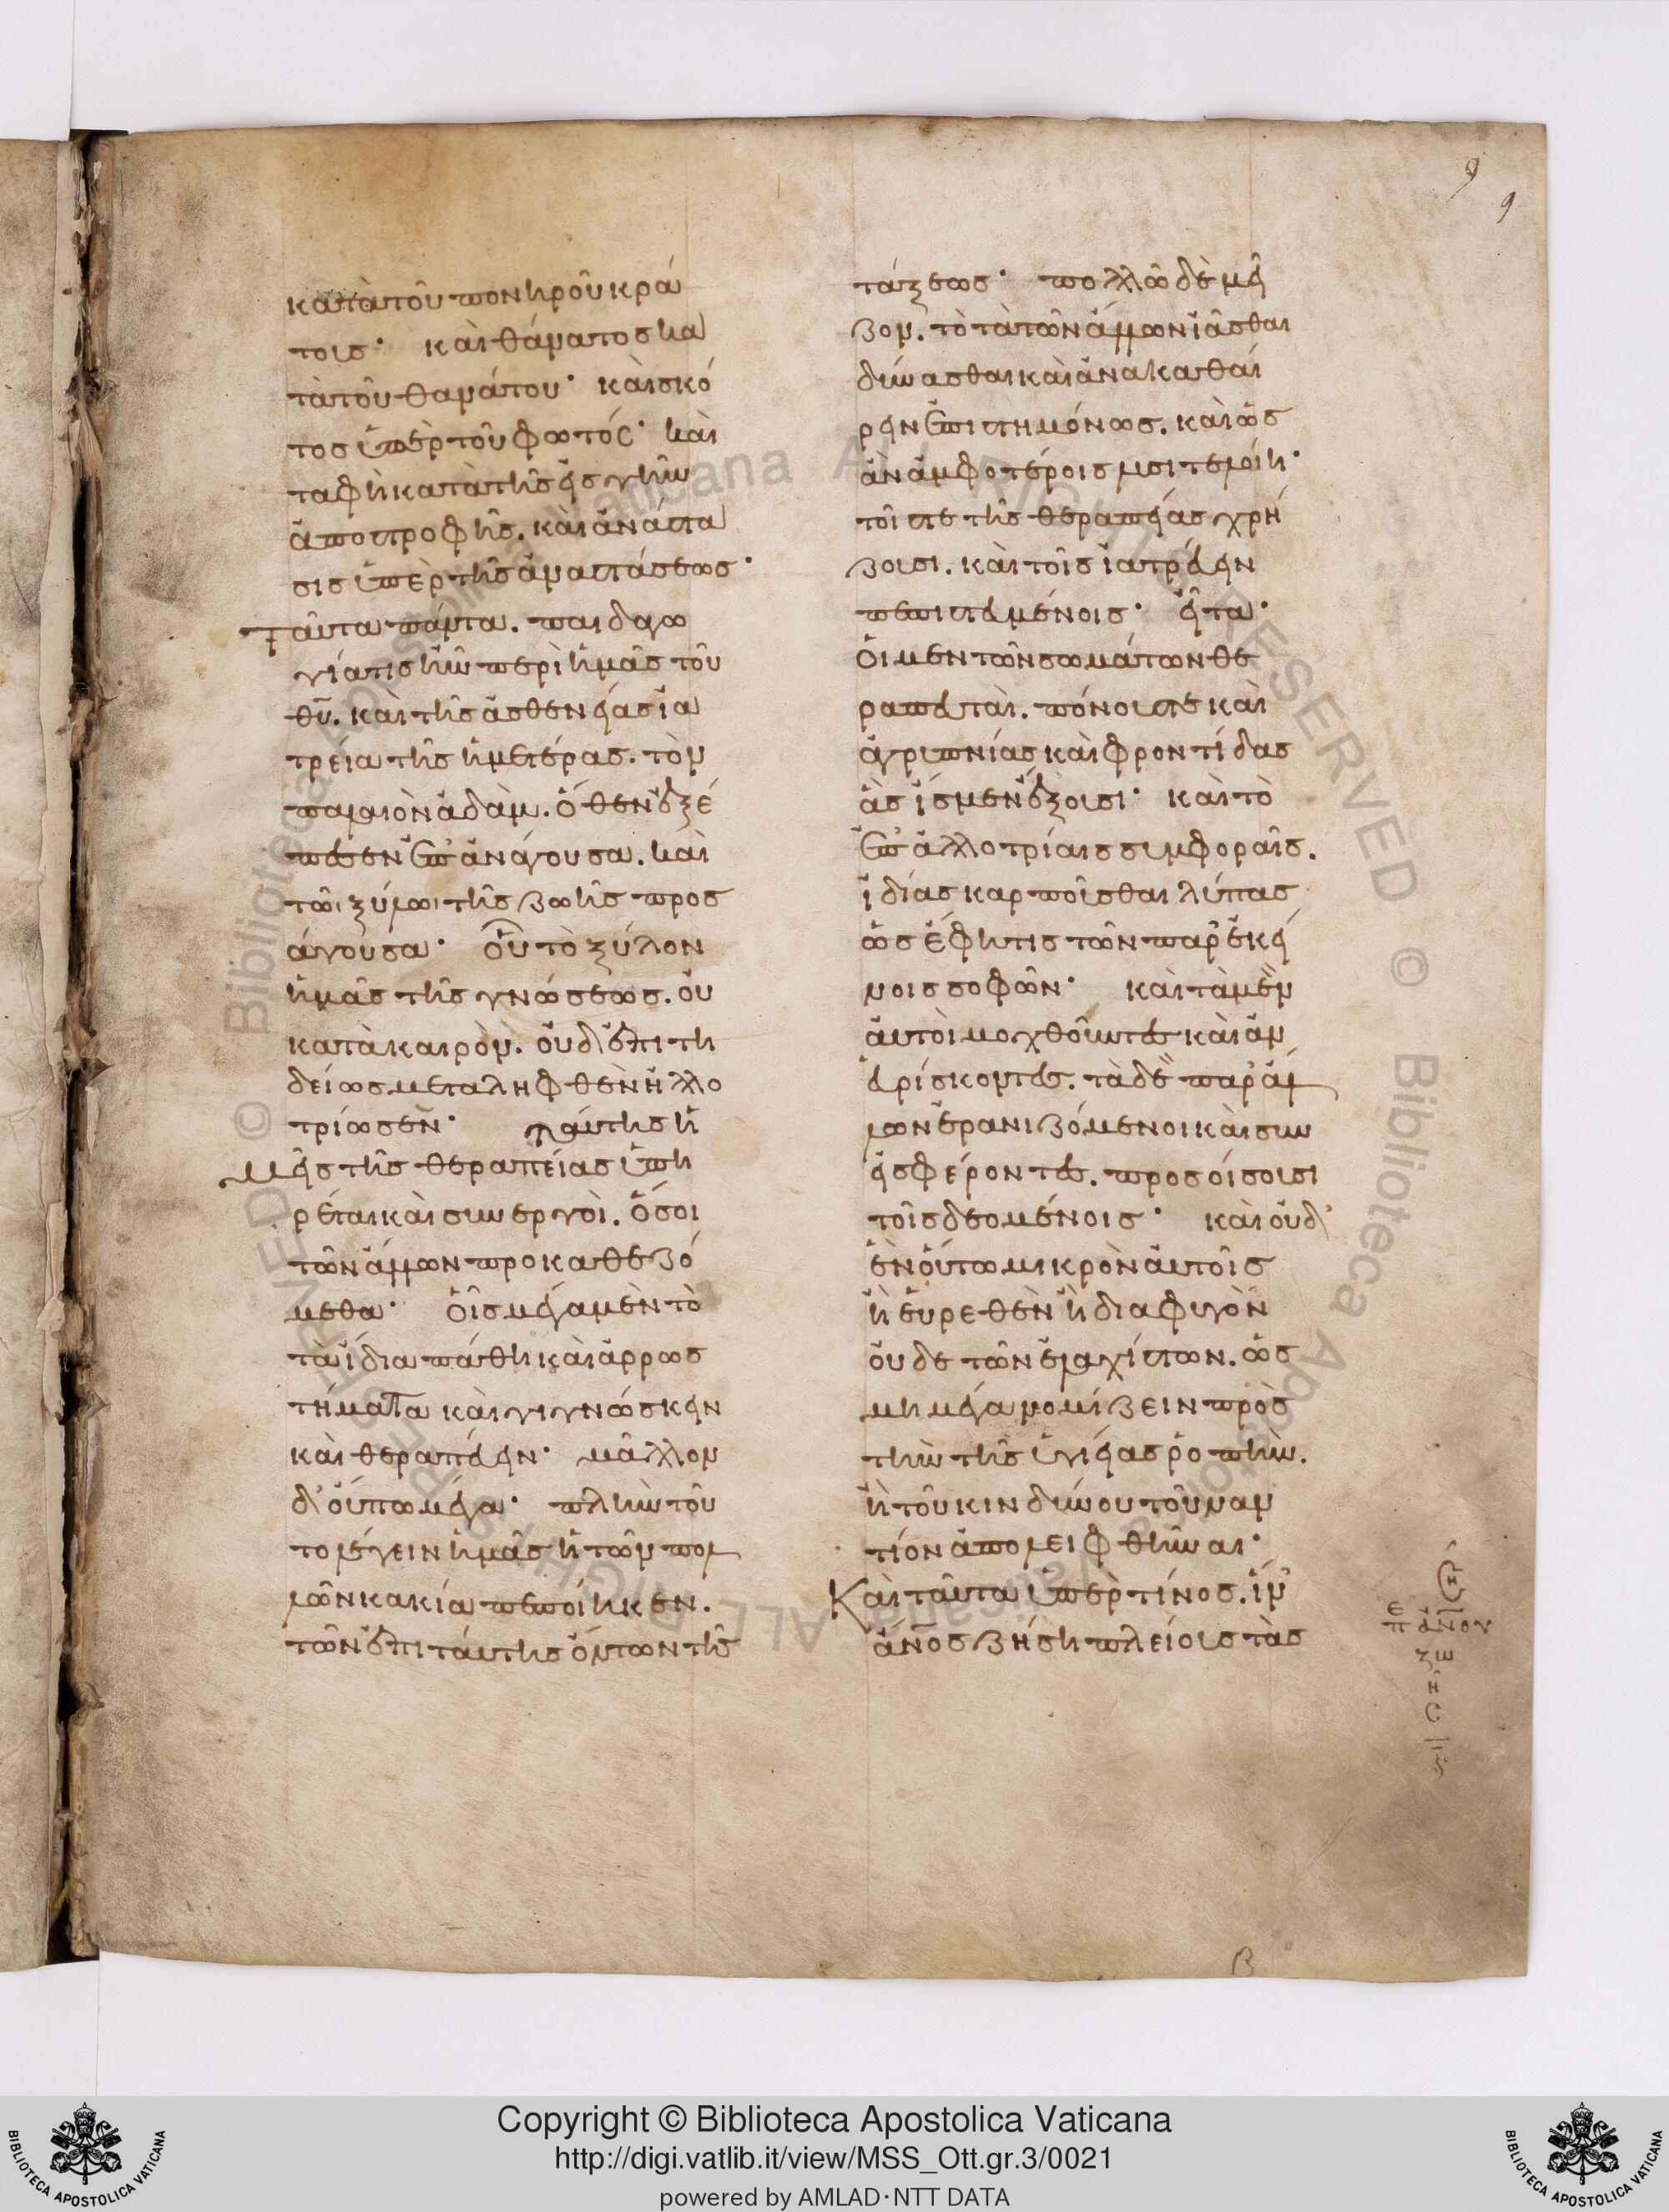 9
9
κατὰ τοῦ πονηροῦ κρά
τους· καὶ θάνατος κα
τὰ τοῦ θανάτου· καὶ σκό
τος ὑπὲρ τοῦ φωτός· καὶ
ταφὴ κατὰ τῆς εἰς γῆν
ἀποστροφῆς. καὶ ἀνάστα
σις ὑπὲρ τῆς ἀναστάσεως·
Ταῦτα πάντα. παιδαγω
γία τις ἦν περὶ ἡμᾶς τοῦ
θῦ. καὶ τῆς ἀσθενείας ἰα
τρεία τῆς ἡμετέρας. τὸν
παλαιὸν ἀδὰμ. ὅθεν ἐξέ
πεσεν ἐπανάγουσα. καὶ
τῶι ξύλωι τῆς ζωῆς προσ
άγουσα· οὗ τὸ ξύλον
ἡμᾶς τῆς γνώσεως. οὐ
κατὰ καιρὸν. οὐδ' ἐπιτη
δείως μεταληφθὲν ἠλλο
τρίωσεν· ταύτης ἡ
μεῖς τῆς θεραπείας ὑπη
ρέται καὶ συνεργοὶ. ὅσοι
τῶν ἄλλων προκαθεζό
μεθα· οἷς μέγα μὲν τὸ
τὰ ἴδια πάθη καὶ ἀρρωσ
τήματα καὶ γιγνώσκειν
καὶ θεραπεύειν· μᾶλλον
δ' οὔπω μέγα· πλὴν τοῦ
το λέγειν ἡμᾶς ἡ τῶν πολ
λῶν κακία πεποίηκεν.
τῶν ἐπὶ ταύτης ὄντων τῆς
τάξεως· πολλῶ δὲ μεῖ
ζον. τὸ τὰ τῶν ἄλλων ἰᾶσθαι
δύνασθαι καὶ ἀνακαθαί
ρειν ἐπιστημόνως. καὶ ὡς
ἂν ἀμφοτέροις λυσιτελοίη·
τοῖς τε τῆς θεραπείας χρή
ζουσι. καὶ τοῖς ἰατρεύειν
πεπιστευμένοις· εἶτα·
Οἱ μὲν τῶν σωμάτων θε
ραπευταὶ. πόνους τε καὶ
ἀγρυπνίας καὶ φροντίδας
ἃς ἴσμεν ἕξουσι· καὶ τὸ
ἐπ' ἀλλοτρίαις συμφοραῖς.
ἰδίας καρποῦσθαι λύπας
ὡς ἔφη τις τῶν παρ' ἐκεί
νοις σοφῶν· καὶ τὰ μὲν
αὐτοὶ μοχθοῦντες καὶ ἀν
ευρίσκοντες. τὰ δὲ παρ' ἄλ
λων ἐρανιζόμενοι καὶ συν
εισφέροντες. προσοίσουσι
τοῖς δεομένοις· καὶ οὐδ'
ἓν οὕτω μικρὸν αὐτοῖς
ἢ εὑρεθὲν ἢ διαφυγὸν
οὐδὲ τῶν ἐλαχίστων. ὡς
μὴ μέγα νομίζειν πρὸς
τὴν τῆς ὑγιείας ῥοπὴν.
ἢ τοῦ κινδύνου τοὐναν
τίον ἀπολειφθῆναι·
Καὶ ταῦτα ὑπὲρ τίνος. ἵν'
ἄνος ζήση πλείους τὰς
β